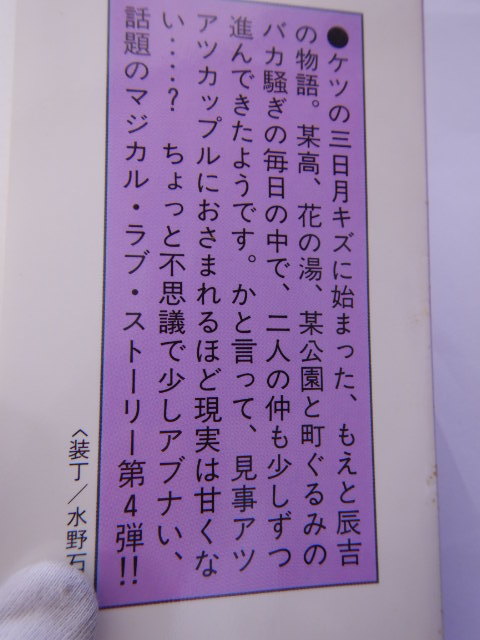 ●ケツの三日月キズに始まった、もえと辰吉
の物語。某高、花の湯、某公園と町ぐるみの
バカ騒ぎの毎日の中で、二人の仲も少しずつ
進んできたようです。かと言って、見事アツ
アツカップルにおさまれるほど現実は甘くな
い‥‥?　ちょっと不思議で少しアブナい、
話題のマジカル・ラブ・ストーリー第4弾!!
〈装丁／水野石